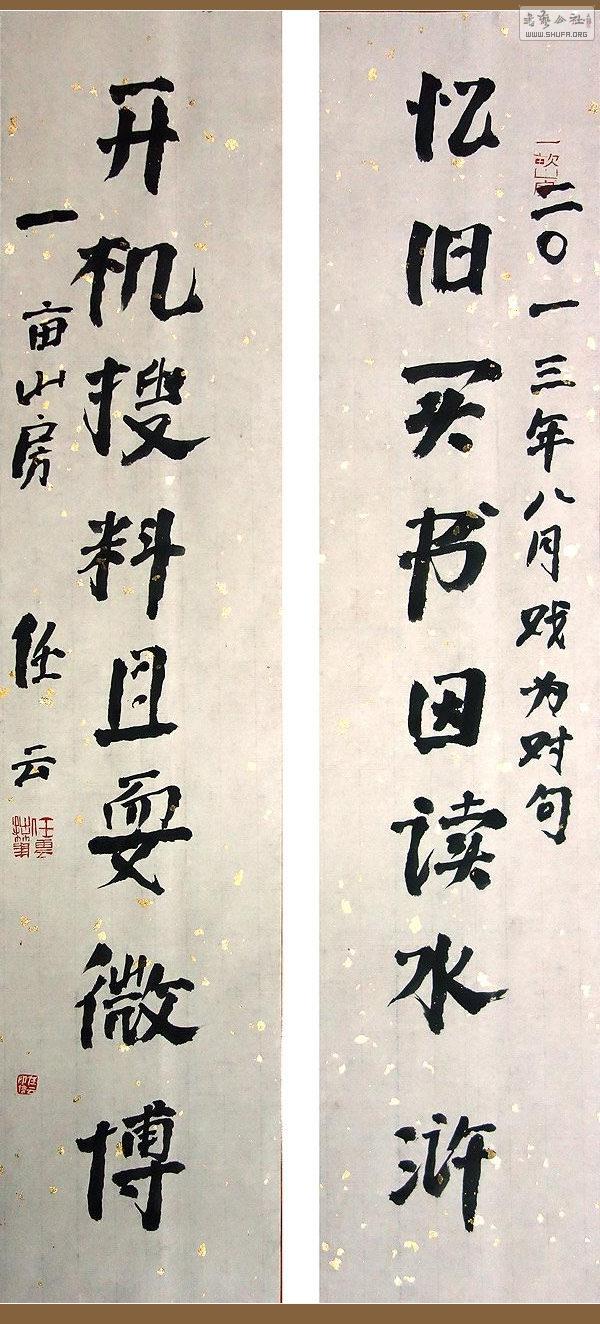 二〇一三年八月戏为对句
忆旧买书因读水浒
开机搜料且耍微博
一亩山房 任云
书艺公社
WWW.SHUFA.ORG